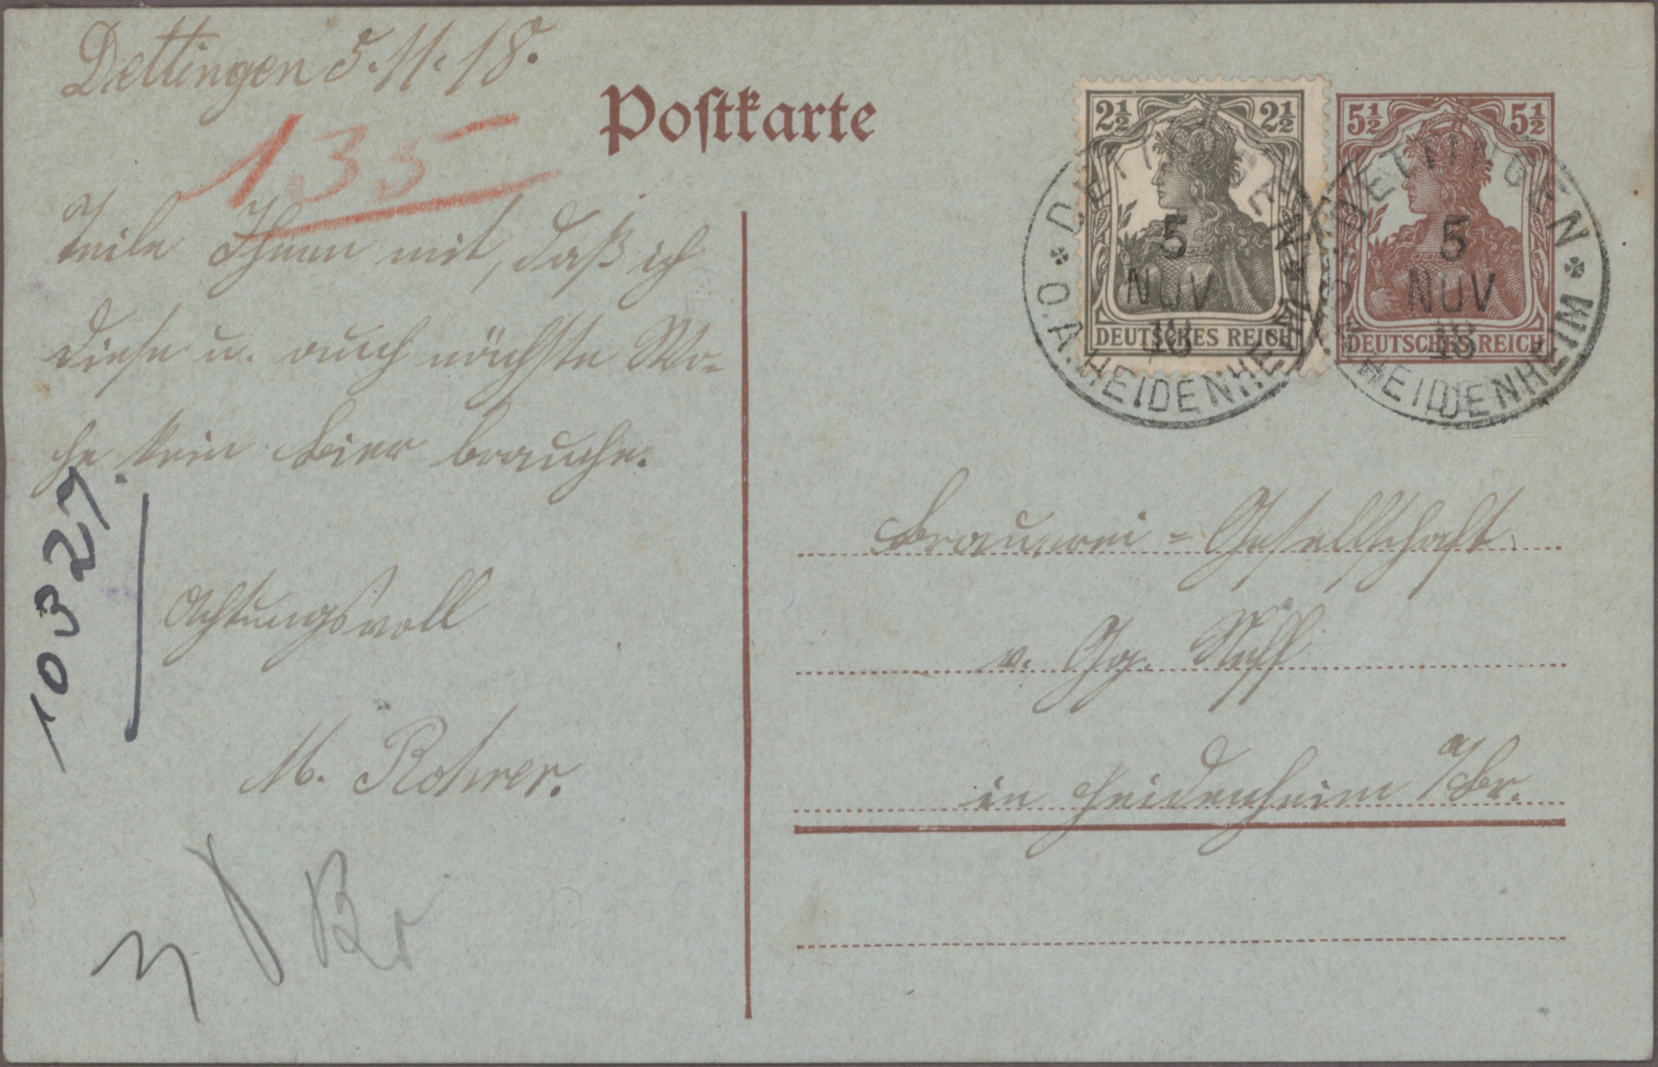 Dettingen 5.11.18.
Postkarte
135
Teile Ihnen mit, daß ich
diese u. auch nächste Wo-
che kein Bier brauche.
Achtungsvoll
M. Rohrer.
10327
Br
2½ 2½
DEUTSCHES REICH
5½ 5½
DEUTSCHES REICH
DETTINGEN
5
NOV
18
O.A. HEIDENHEIM
DETTINGEN
5
NOV
18
O.A. HEIDENHEIM
Brauerei=Gesellschaft
v. Gg. Neff
in Heidenheim a/Br.